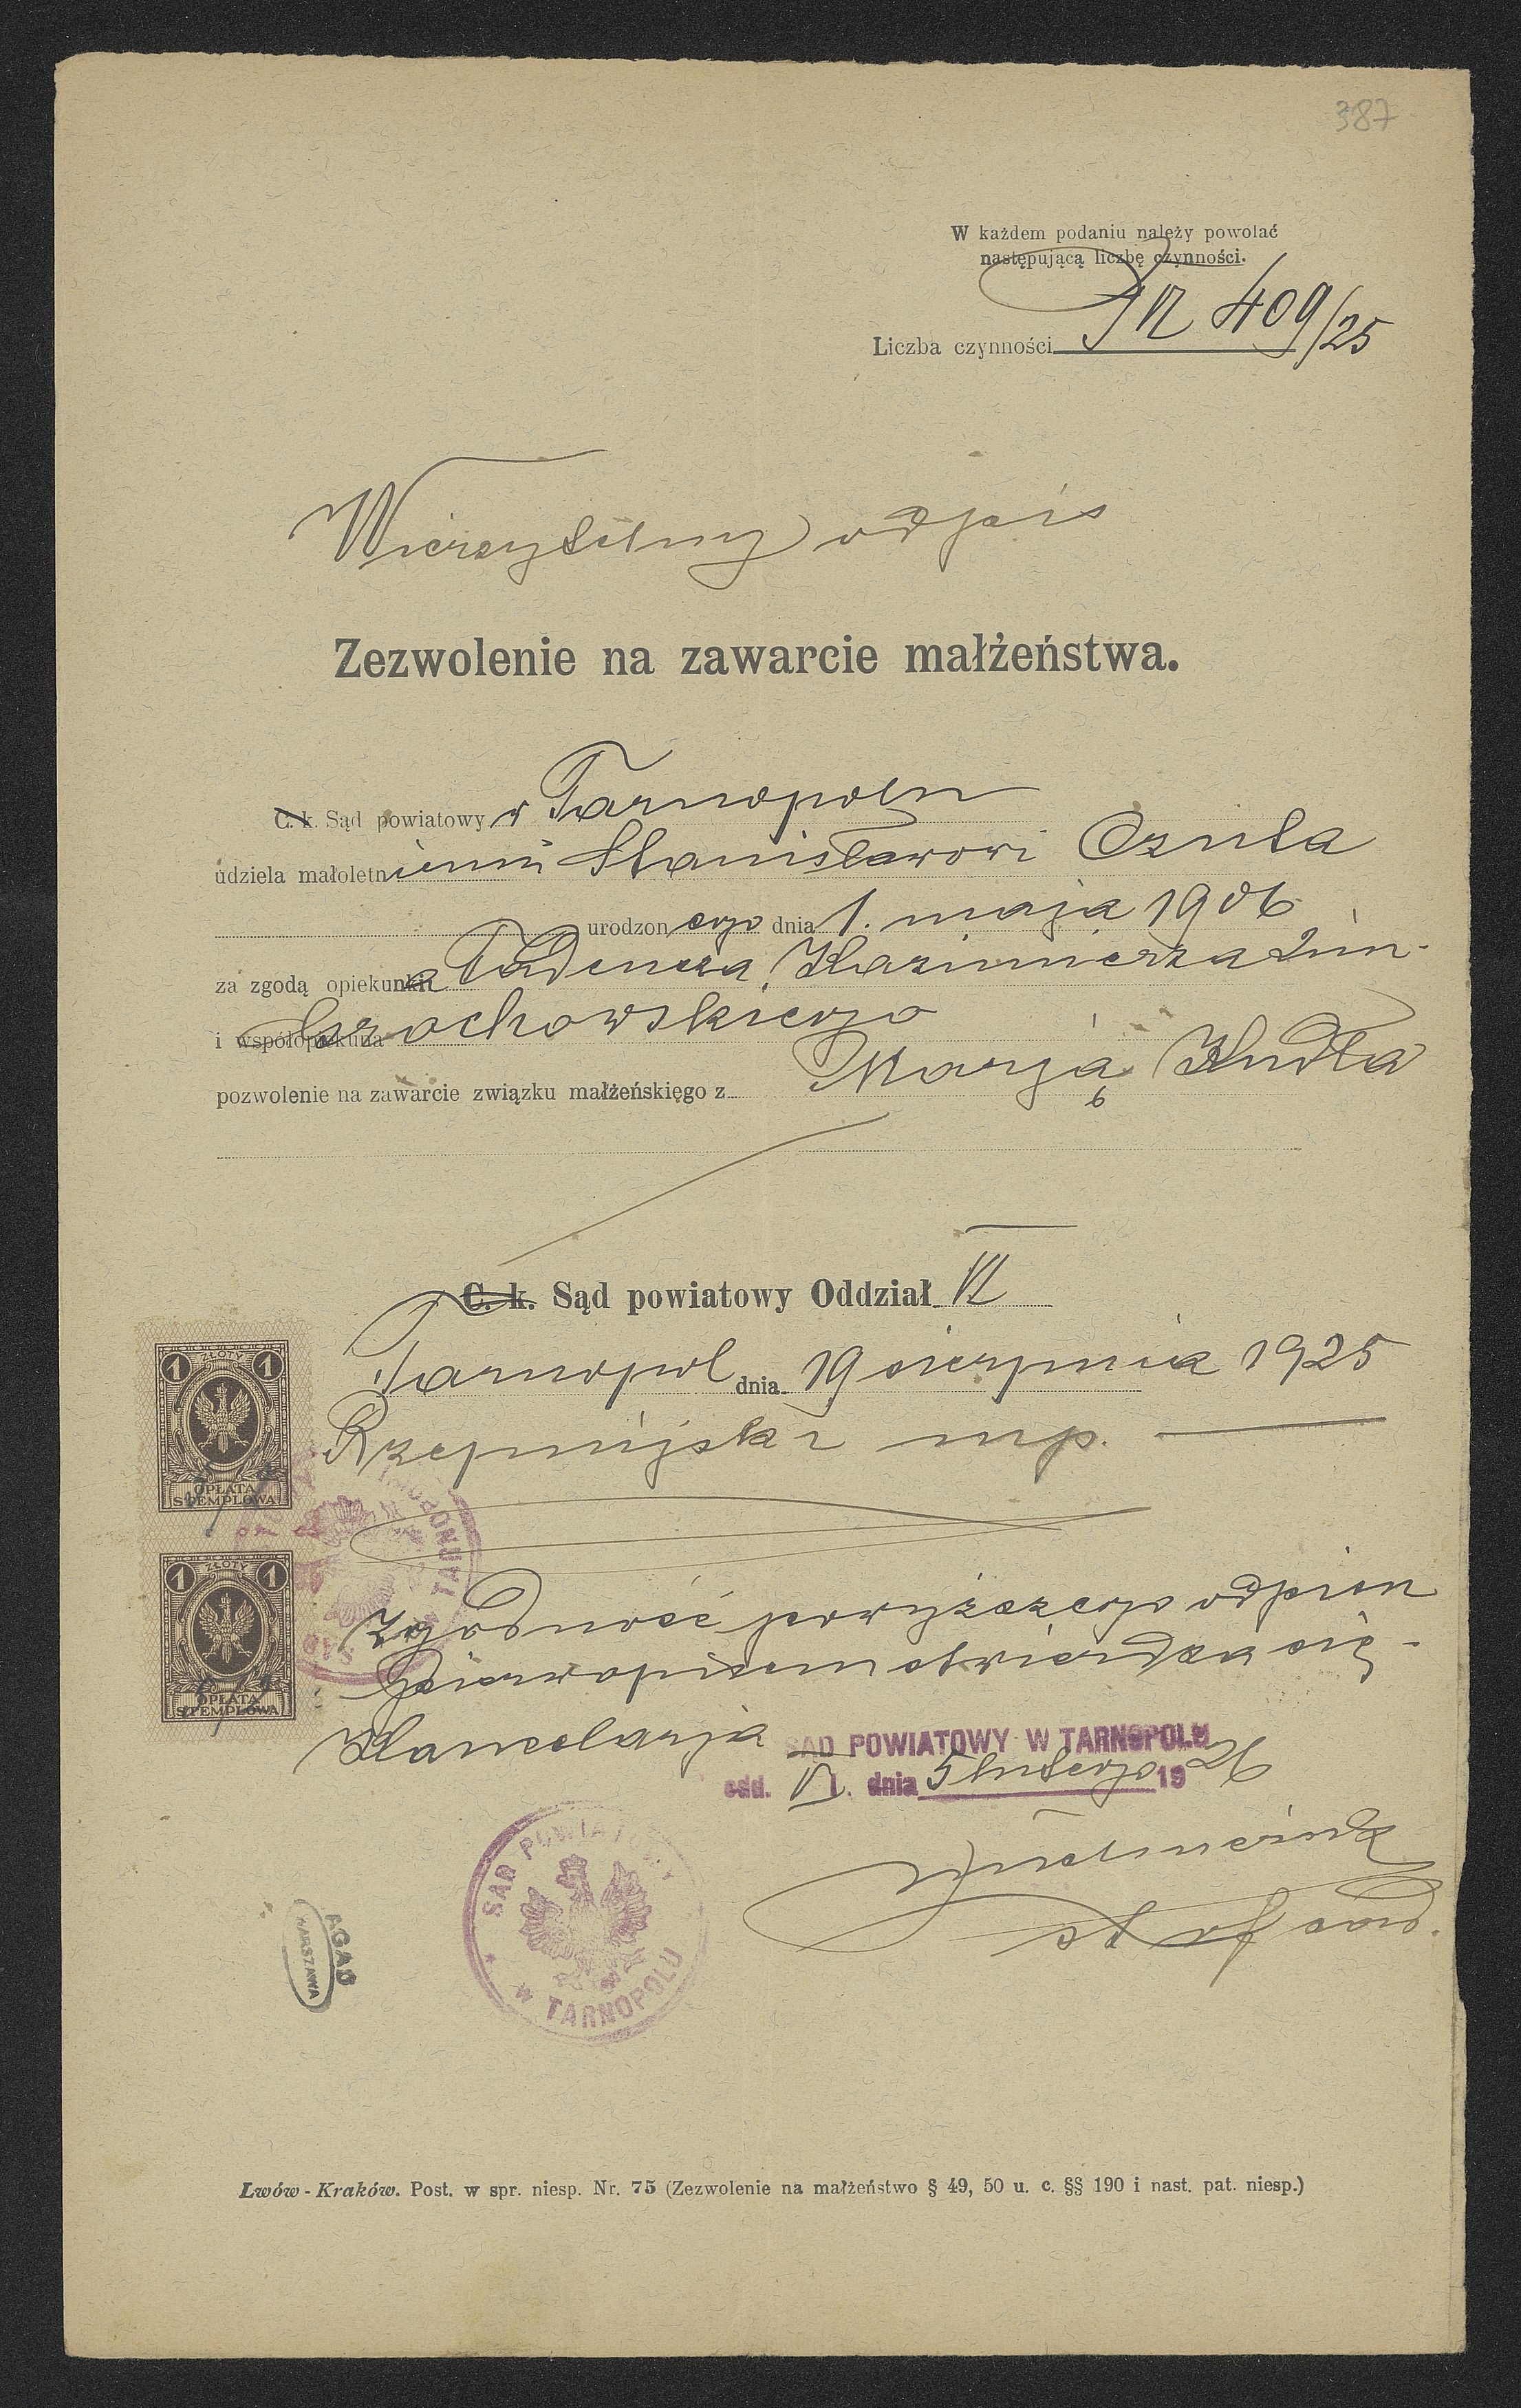 387
W każdem podaniu należy powołać
następującą liczbę czynności.
Liczba czynności 409/25
Wierzytelny odpis
Zezwolenie na zawarcie małżeństwa.
C. k. Sąd powiatowy w Tarnopolu
udziela małoletniemu Stanisławowi Czuła
urodzonego dnia 1. maja 1906
za zgodą opiekuna Tadeusza Kazimierza 2im.
i współopiekuna Grochowskiego
pozwolenie na zawarcie związku małżeńskiego z Marją Kudła
C. k. Sąd powiatowy Oddział VI
Tarnopol dnia 19 sierpnia 1925
mp.
1 ZŁOTY 1
OPŁATA
STEMPLOWA
1 ZŁOTY 1
OPŁATA
STEMPLOWA
Zgodność powyższego odpisu
z pierwopisem stwierdza się.
Kancelarja SĄD POWIATOWY W TARNOPOLU
odd. VI. dnia 5 lutego 1926
SĄD POWIATOWY
w TARNOPOLU
AGAD
WARSZAWA
Lwów - Kraków. Post. w spr. niesp. Nr. 75 (Zezwolenie na małżeństwo § 49, 50 u. c. §§ 190 i nast. pat. niesp.)